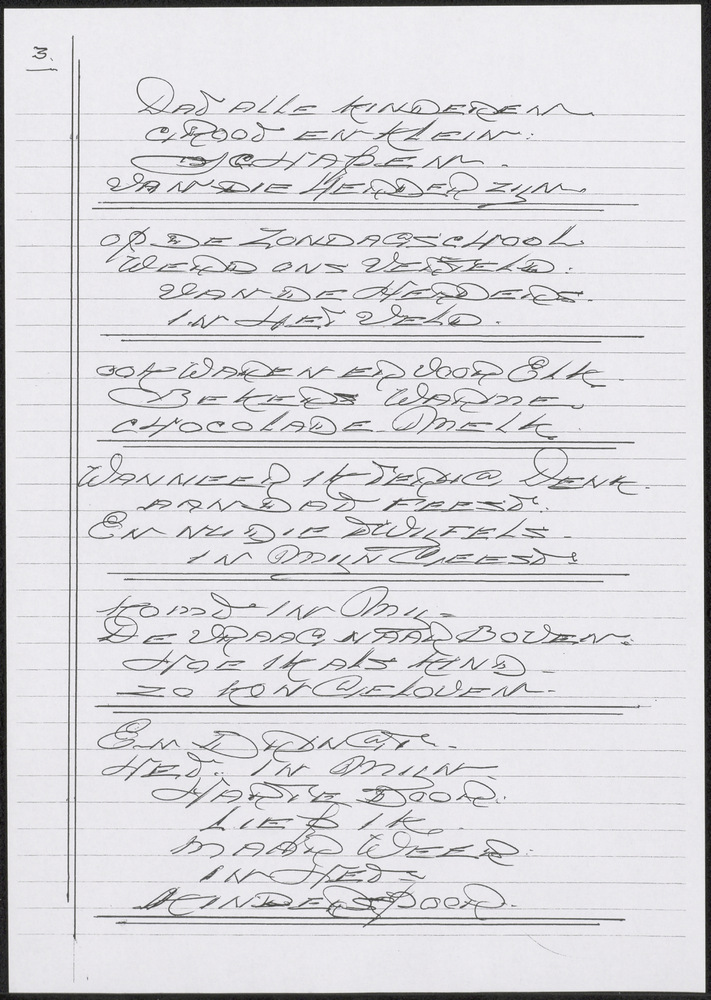 3.
DAT ALLE KINDEREN
GROOT EN KLEIN:
SCHAPEN.
VAN DIE HERDER ZIJN.
OP DE ZONDAGSCHOOL
WERD ONS VERTELD:
VAN DE HERDERS.
IN HET VELD.
OOK WAREN ER VOOR ELK.
BEKERS WARME.
CHOCOLADE MELK.
WANNEER IK TERUG DENK.
AAN DAT FEEST.
EN NU DIE TWIJFELS.
IN MIJN GEEST:
KOMT IN MIJ-
DE VRAAG NAAR BOVEN:
HOE IK ALS KIND
ZO KON GELOVEN.
EN DRINGT.
HET. IN MIJN
HARTJE DOOR:
LIEP IK.
MAAR WEER.
IN HET-
KINDERSPOOR.